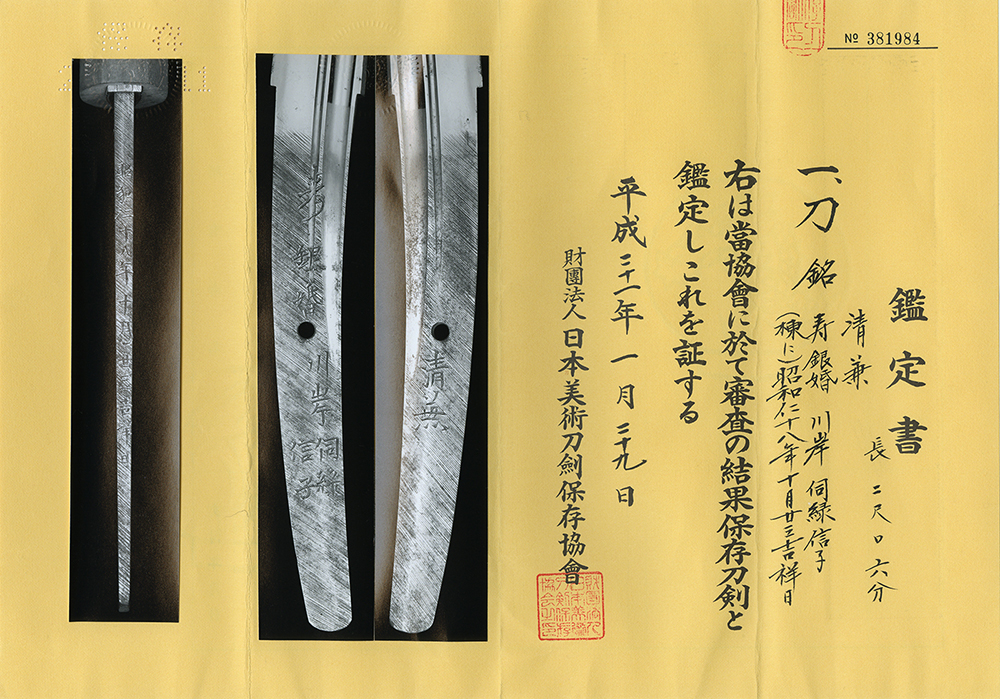 № 381984
鑑定書
長 二尺〇六分
一、刀 銘 清兼
寿銀婚 川岸 伺緑信子
(棟に)昭和仁十八年十月廿三吉祥日
右は當協會に於て審査の結果保存刀剣と
鑑定しこれを証する
平成二十一年一月二十九日
財團法人日本美術刀劍保存協會
清兼
銀婚 川岸 伺緑
信子